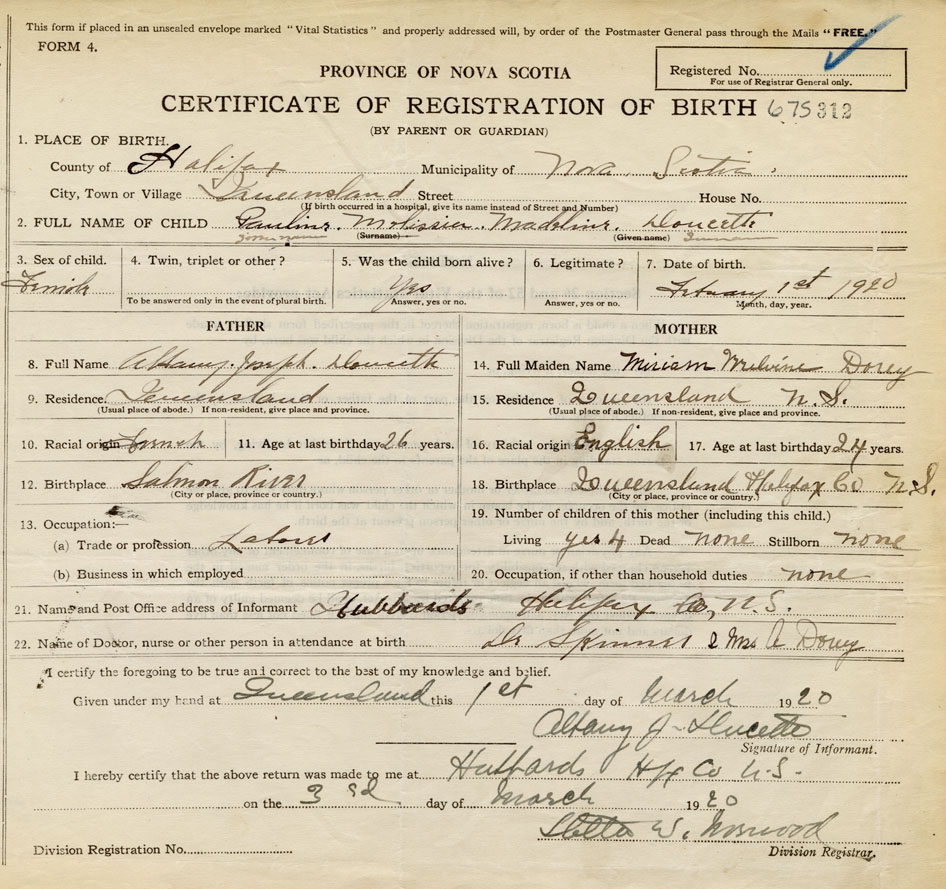 This form if placed in an unsealed envelope marked "Vital Statistics" and properly addressed will, by order of the Postmaster General pass through the Mails "FREE."
FORM 4.
Registered No.
For use of Registrar General only.
PROVINCE OF NOVA SCOTIA
CERTIFICATE OF REGISTRATION OF BIRTH 675312
(BY PARENT OR GUARDIAN)
1. PLACE OF BIRTH.
County of Halifax Municipality of Nova Scotia.
City, Town or Village Queensland Street House No.
(If birth occurred in a hospital, give its name instead of Street and Number)
2. FULL NAME OF CHILD Pauline Madeline Doucette
(Surname) (Given name)
3. Sex of child. 4. Twin, triplet or other? 5. Was the child born alive? 6. Legitimate? 7. Date of birth.
Female Yes February 1st 1920
To be answered only in the event of plural birth. Answer, yes or no. Answer, yes or no. Month, day, year.
FATHER MOTHER
8. Full Name Albany Joseph Doucette 14. Full Maiden Name Miriam Melvine Dorey
9. Residence Queensland 15. Residence Queensland N.S.
(Usual place of abode.) If non-resident, give place and province. (Usual place of abode.) If non-resident, give place and province.
10. Racial origin French 11. Age at last birthday 26 years. 16. Racial origin English 17. Age at last birthday 24 years.
12. Birthplace Salmon River 18. Birthplace Queensland Halifax Co N.S.
(City or place, province or country.) (City or place, province or country.)
13. Occupation:— 19. Number of children of this mother (including this child.)
(a) Trade or profession Labour Living yes 4 Dead none Stillborn none
(b) Business in which employed 20. Occupation, if other than household duties none
21. Name and Post Office address of Informant Hubbards Halifax Co, N.S.
22. Name of Doctor, nurse or other person in attendance at birth Dr Skinner & Mrs A Dorey
I certify the foregoing to be true and correct to the best of my knowledge and belief.
Given under my hand at Queensland this 1st day of March 1920
Albany J Doucette
Signature of Informant.
I hereby certify that the above return was made to me at Hubbards Hfx Co N.S.
on the 3rd day of March 1920
W. Norwood
Division Registration No. Division Registrar.